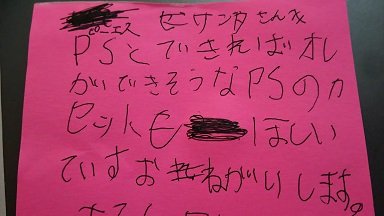 サンタさんえ
ピーエス
PSとできればオレ
ができそうなPSのカ
セットも ほしい
ていすおねがいします。